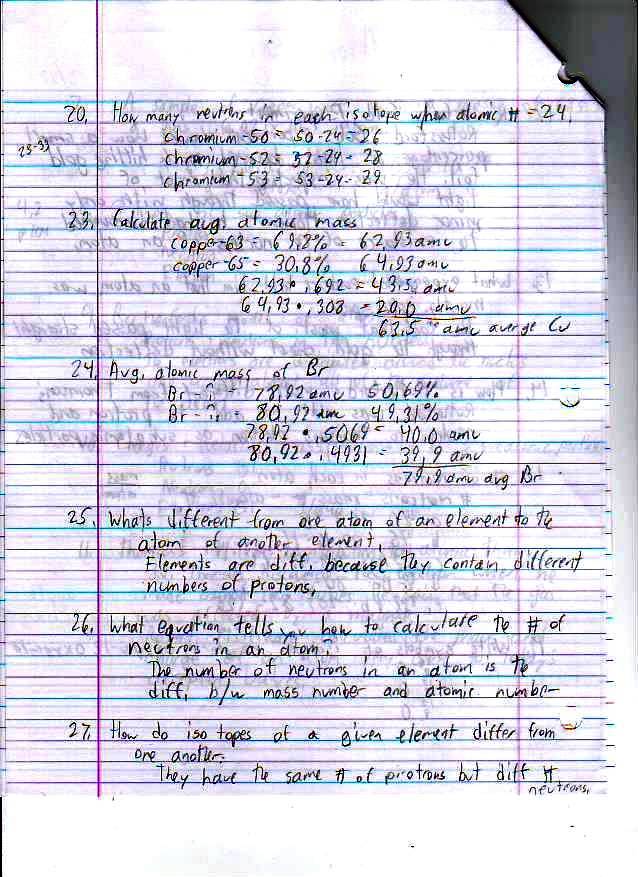 20, How many neutrons in each isotope when atomic # = 24,
23-33
Chromium-50 = 50-24 = 26
chromium-52 = 52-24 - 28
chromium - 53 = 53-24 - 29
23. Calculate avg. atomic mass
copper-63 = 69,2% = 62,93 amu
copper-65 = 30,8% 64,93 amu
62.93 • ,692 = 43,5, amu
64,93 • ,308 = 20,0 amu
63,5 amu averge Cu
24, Avg, atomic mass of Br
Br - i = 78,92 amu 50,69%
Br - ii = 80,92 amu 49,31%
78,92 • ,5069 = 40,0 amu
80,92 • ,4931 = 39,9 amu
79,9 amu avg Br
25, Whats different from one atom of an element to the
atom of another element,
Elements are diff, because they contain different
numbers of protons,
26, What equation tells you how to calculate the # of
neutrons in an atom?
The number of neutrons in an atom is the
diff, b/w mass number and atomic number
27, How do iso topes of a given element differ from
one another.
They have the same # of protrons but diff #
neutrons,